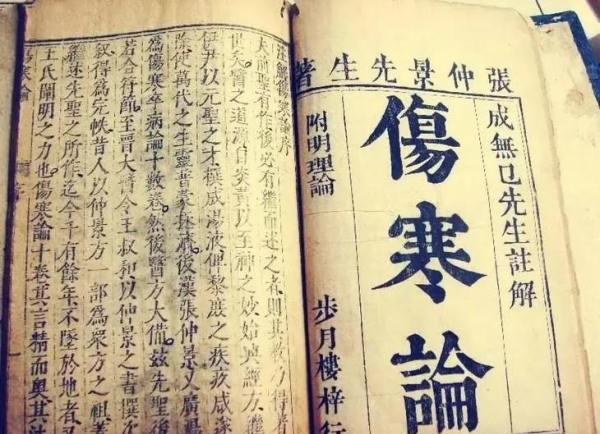 張仲景先生著
成無已先生註解
傷寒論
附明理論
步月樓梓行
注解傷寒論序
夫前聖有作後必有繼而述之者則其教乃得著
世矣醫之道源自炎黃以至神之妙始興經方繼
伊尹以元聖之才撰成湯液俾黎庶之疾疢咸
除使萬代之生靈普蒙拯濟後漢張仲景又廣湯
為傷寒卒病論十數卷然後醫方大備茲先聖後
若合符節至晉太醫令王叔和以仲景之書撰次
敘得為完帙昔人以仲景方一部為眾方之祖蓋
繼述先聖之所作迄今千有餘年不墜於地者又
王氏闡明之力也傷寒論十卷其言精而奧其法
傷寒論 序